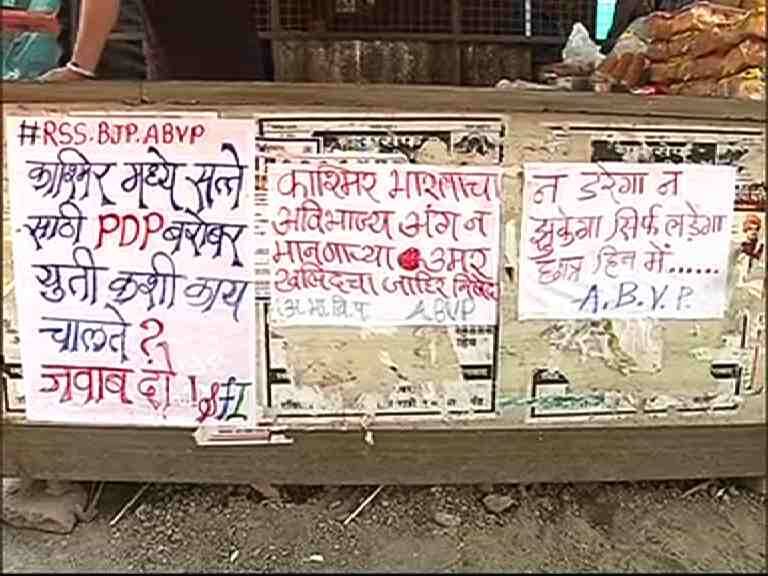 #RSS.BJP.ABVP
काश्मिर मध्ये सत्ते
साठी PDP बरोबर
युती कशी काय
चालते?
जवाब दो!
काश्मिर भारताचा
अविभाज्य अंग न
मानणाऱ्या उमर
खलिदचा जाहिर निषेध
अ.भा.वि.प ABVP
न डरेगा न
झुकेगा सिर्फ लड़ेगा
छात्र हित में......
A.B.V.P.